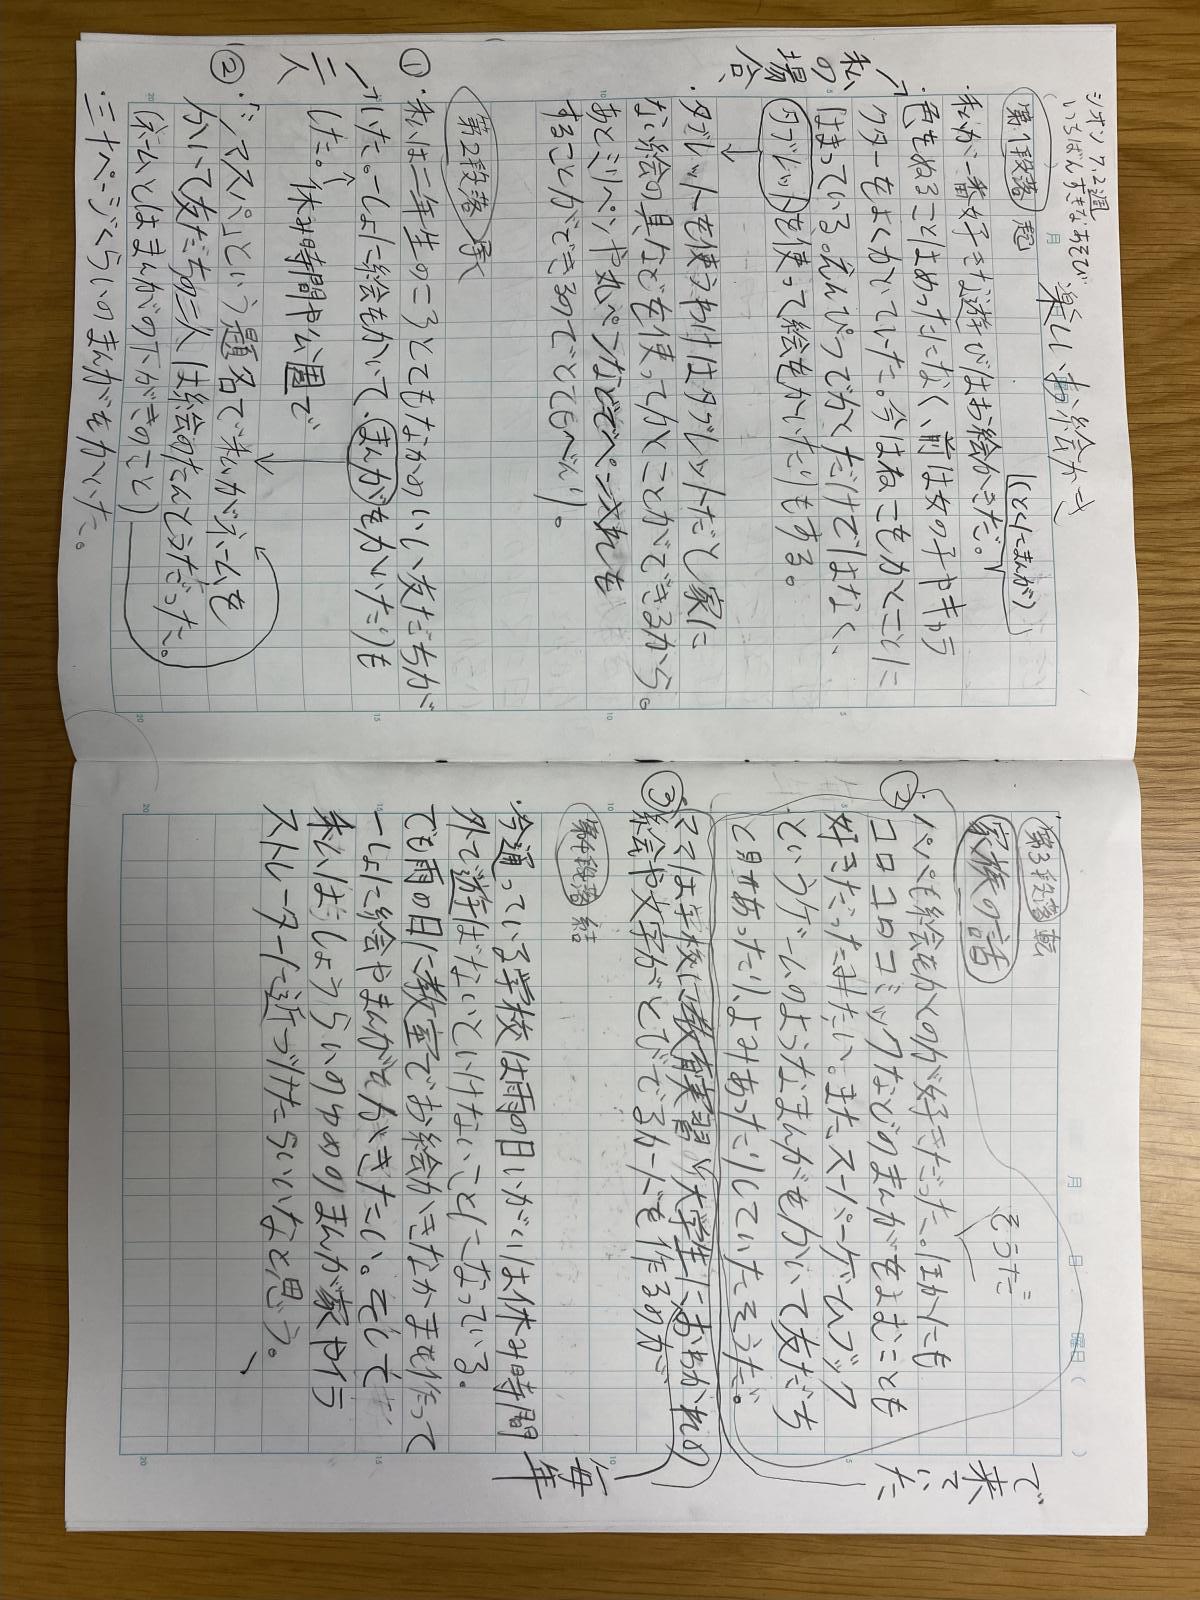 シオン 7.2週
いちばんすきなあそび
楽しいお絵かき
第1段落 起
(とくにまんが)
・私が一番好きな遊びはお絵かきだ。
色をぬることはめったになく、前は女の子やキャラ
クターをよくかいていた。今はねこをかくことに
はまっている。えんぴつでかくだけではなく、
私の場合
タブレットを使って絵をかいたりもする。
・タブレットを使うわけはタブレットだと家に
ない絵の具などを使ってかくことができるから。
あとシャーペンや丸ペンなどペン入れを
することができるのでとてもべんり。
第2段落 承
①
・私は二年生のころとてもなかのいい友だちが
二人
いた。いっしょに絵をかいて、まんがをかいたりも
した。
休み時間や公園で
②
・「シマスパ」という題名で私がネームを
かいて友だちの二人は絵のたんとうだった。
(ネームとはまんがの下がきのこと)
・三十ページくらいのまんがをかいた。
月 日 曜日
第3段落 転
家族の話
そうだ
②
・パパも絵をかくのが好きだった。ほかにも
コロコロコミックなどのまんがをよむことも
好きだったみたい。またスーパーゲームブック
というゲームのようなまんがをかいて友だち
と見せあったり、よみあったりしていたそうだ。
で来ていた
③
・ママは学校に教育実習で大学生におわかれの
絵や文字がとびでるカードを作るのが
毎年
第4段落 結
・今通っている学校は雨の日いがいは休み時間
外で遊ばないといけないことになっている。
でも雨の日に教室でお絵かきなかまを作って
いっしょに絵やまんがをかきたい。そして
私はしょうらいのゆめのまんが家やイラ
ストレーターに近づけたらいいなと思う。